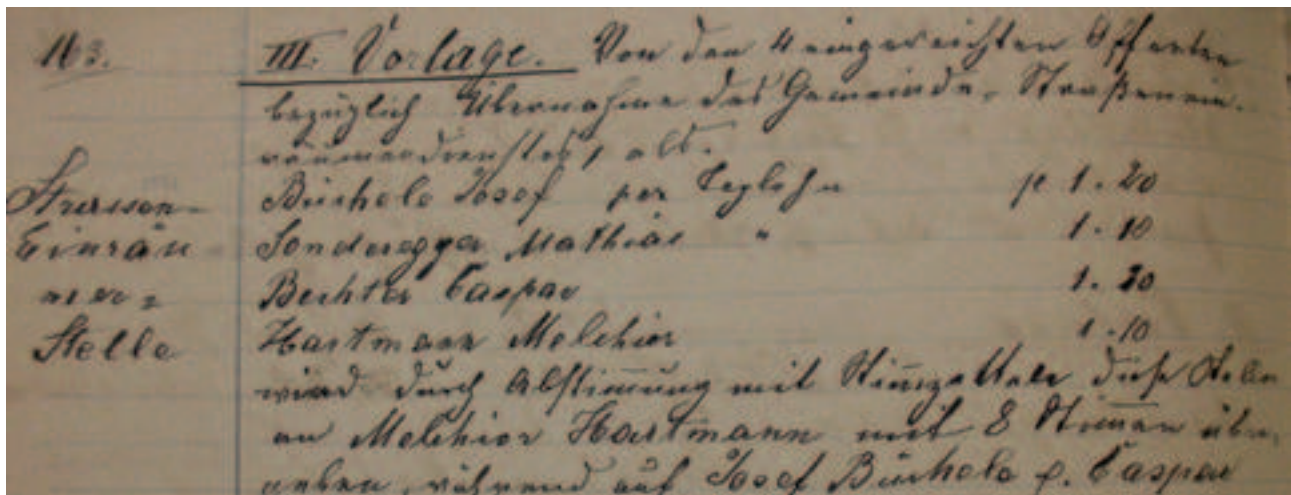 163.
III. Vorlage. Von den 4 eingereichten Offerten
bezüglich Übernahme des Gemeinde-Straßenein-
räumerdienstes, als.
Strassen-
Einräu-
mer-
Stelle
Büchele Josef per Taglohn f 1.20
Sonderegger Mathias " 1.10
Bechter Caspar 1.20
Hartmann Melchior 1.10
wird durch Abstimmung mit Stimzettele diese Stelle
an Melchior Hartmann mit 8 Stimen über-
geben, während auf Josef Büchele Caspar